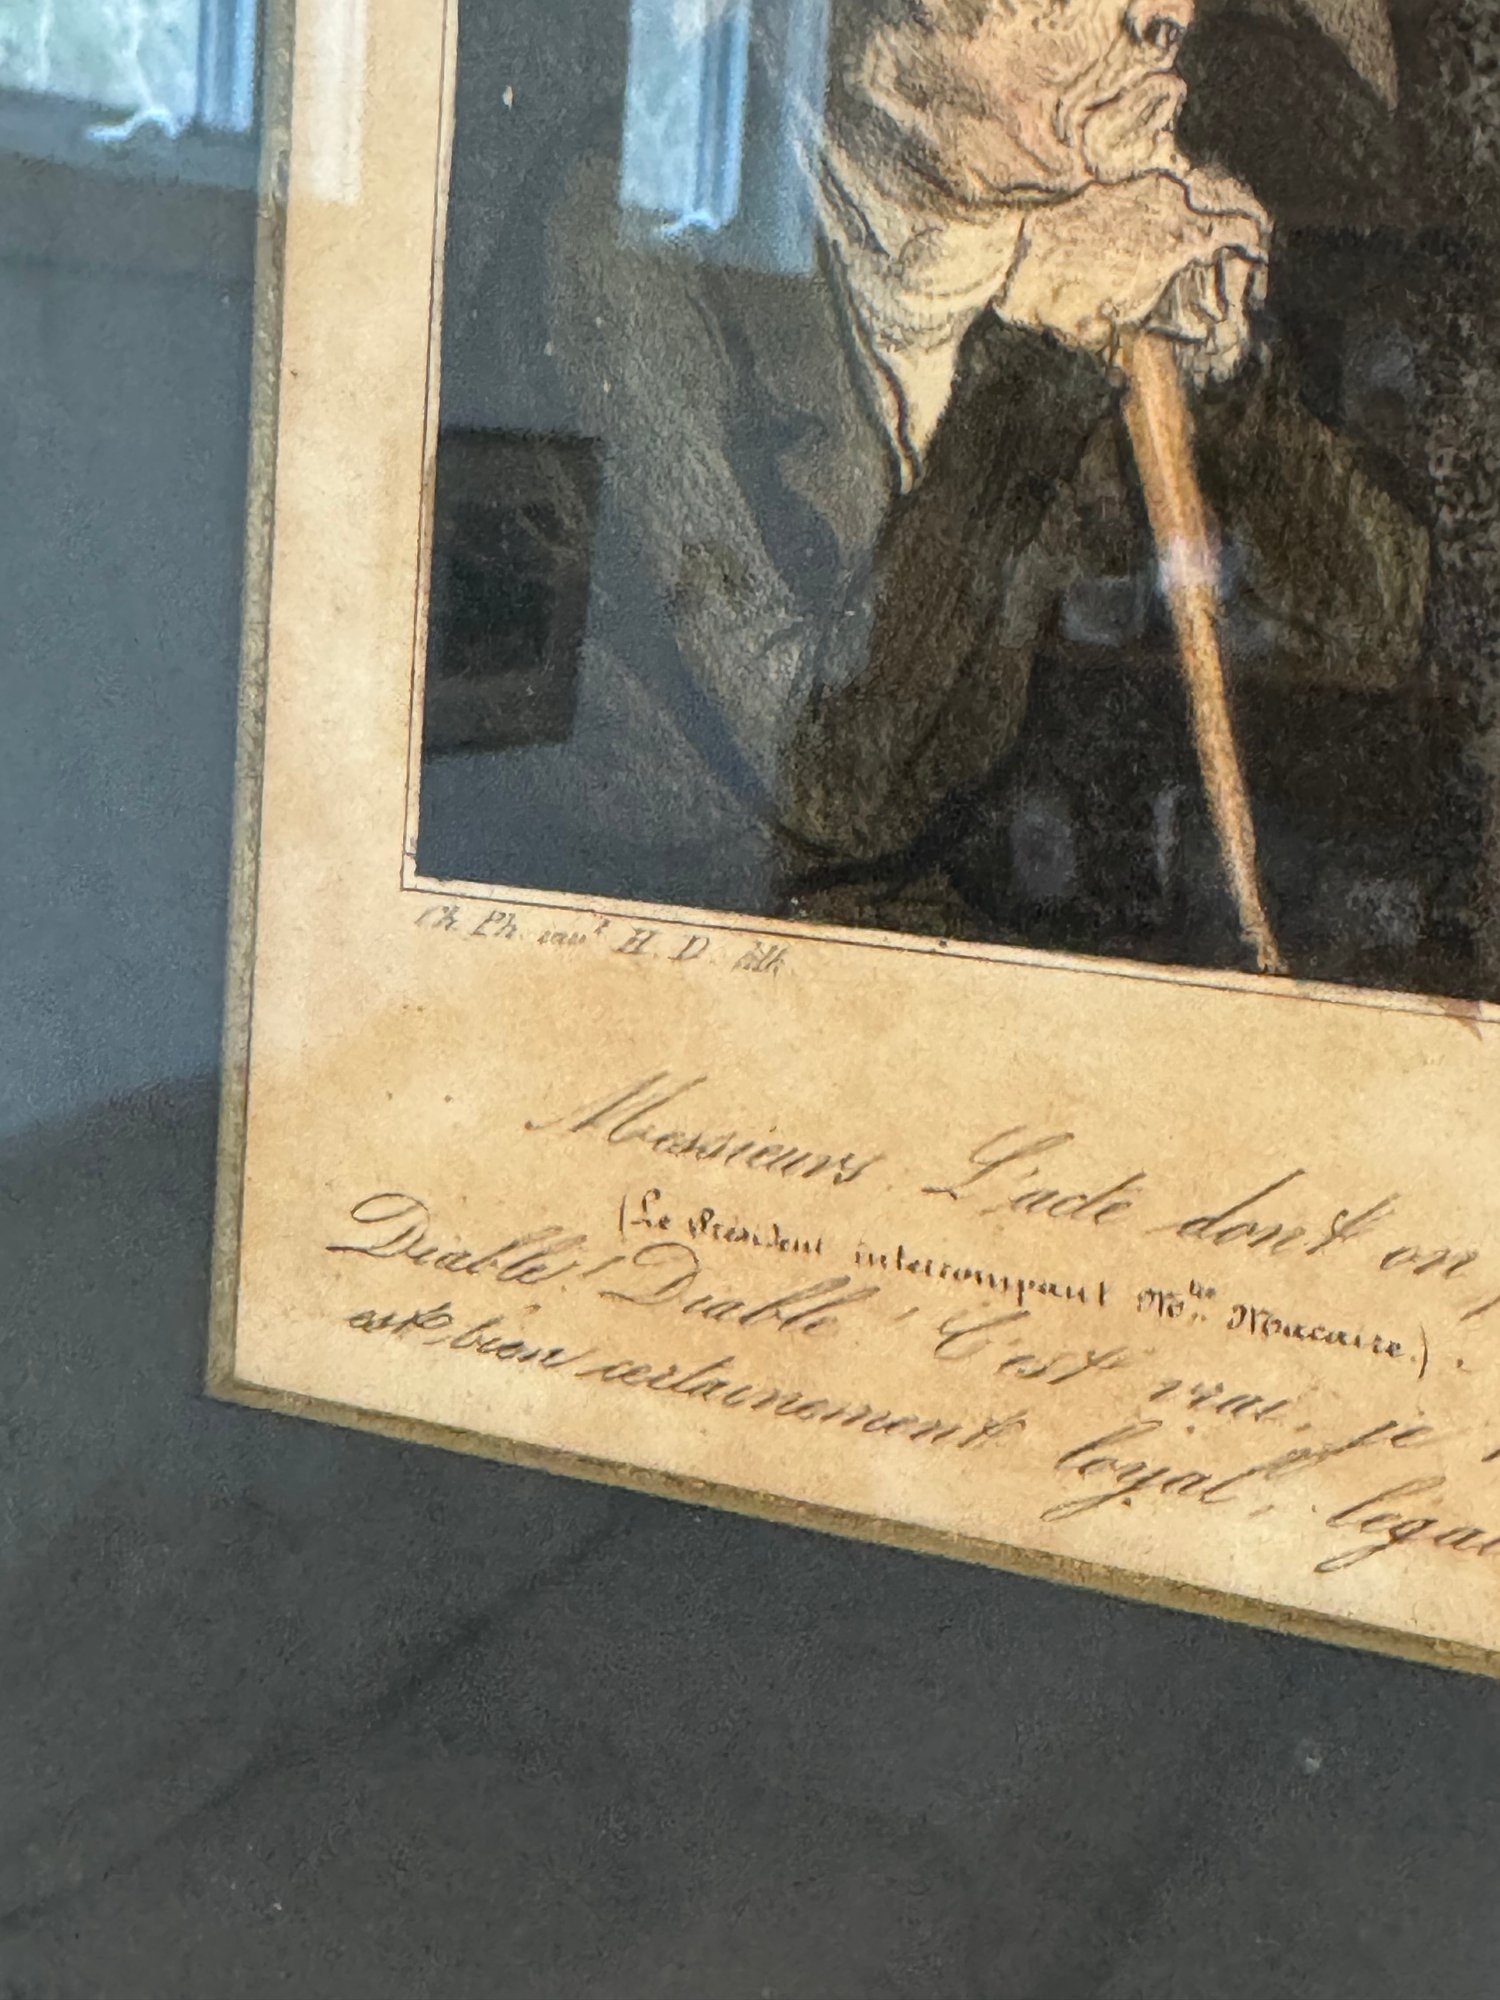 Ch. Ph. invt. H. D. lith.
Messieurs. L'acte dont on
(Le Président interrompant Mtre Macaire.).
Diable! Diable! C'est vrai, je
est bien certainement loyal, légal